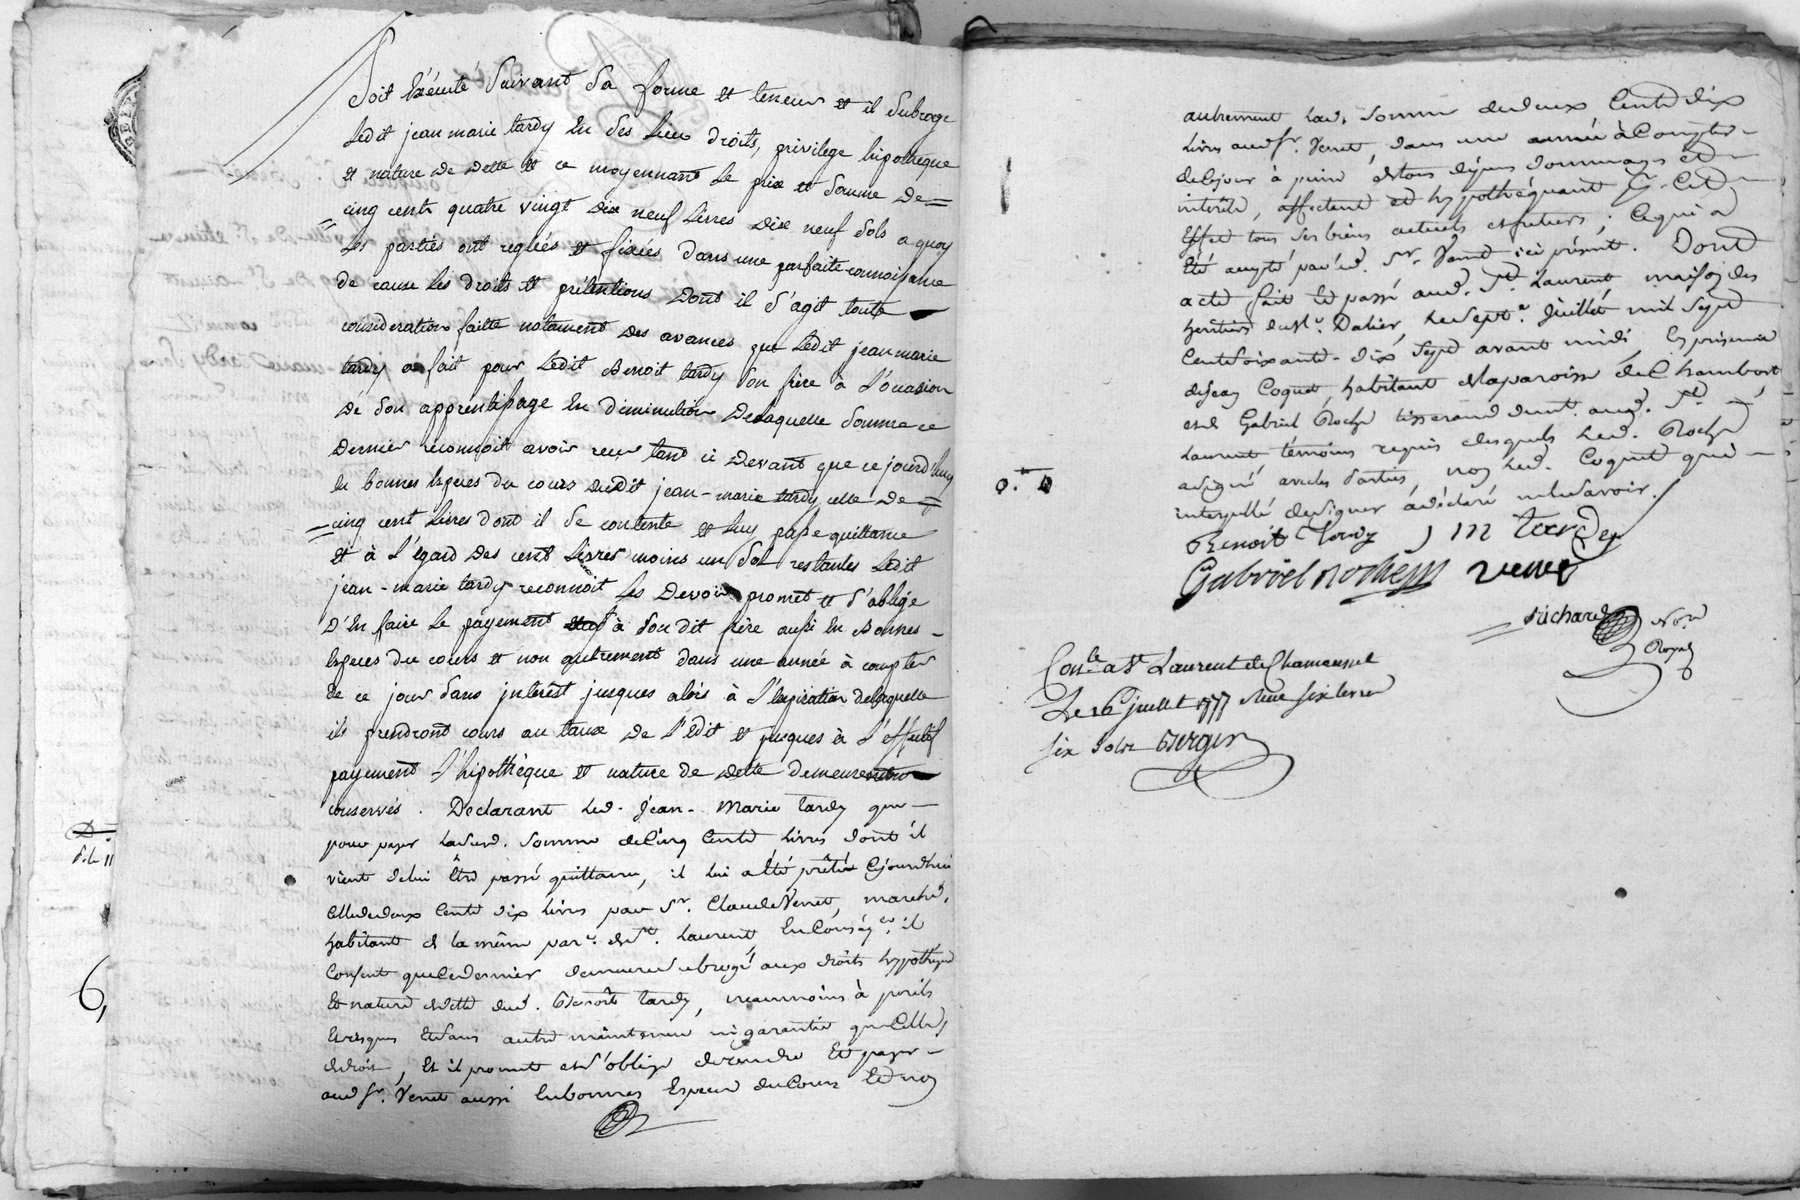 Soit Exécuté Suivant Sa forme et teneur et il Subroge
Ledit jean marie tardy En Ses Lieu droits, privilege hipotheque
et nature de dette et ce moyennant Le prix et Somme De =
cinq cent quatre vingt dix neuf Livres dix neuf Sols a quoy
Les parties ont reglées et fixées dans une parfaite connoissance
de cause Les droits et prétentions Dont il S'agit toute
consideration faitte notament des avances que Ledit jean marie
tardy a fait pour Ledit Benoit tardy Son frère à L'occasion
De Son apprentissage En diminution Delaquelle Somme ce
Dernier reconnoit avoir reçu tant ci Devant que ce jourd'huy
En bonnes Espèces du cours dudit jean-marie tardy celle De =
= cinq cent Livres dont il Se contente et Luy passe quittance
et à L'égard des cent Livres moins un Sol restantes Ledit
jean-marie tardy reconnoit Les Devoir promet et S'oblige
D'En faire Le payement à Son dit frère aussi En Bonnes -
Espèces du cours et non autrement dans une année à compter
de ce jour Sans jnterêst jusques alors à L'Expiration delaquelle
ils prendront cours au taux de L'Edit et jusques à L'effectif
payement L'hipothèque et nature de dette demeurent
conservés. Declarant Led. Jean-Marie tardy que -
pour payer Lasusd. Somme deCinq Cents Livres dont il
vient delui Être passé quittance, il lui a Eté prêté Cejourdhui
Celle dedeux Cents dix Livres par Sr. Claude Venet, marchd.
habitant de la même parse. de St. Laurent En Conséqce. il
Consent queCedernier demeure Subrogé aux droits hypothèque
Et nature dedette dud. Benoit tardy, neanmoins à perils
Et risques Et Sans autre maintenue ni garantie queCelle
dedroit, Et il promet et S'oblige derendre Et payer -
aud Sr. Venet aussi Enbonnes Especes duCours Et non
D.
6,
autrement Lad. Somme dedeux Cents dix
Livres aud Sr. Venet, dans une année à Compter -
deCejour à peine detous dépens dommages et
interêts, affectant et hypothéquant à Cet
Effet tous Ses biens actuels et futurs; Cequi a
Eté accepté par led. Sr. Venet ici présent. Dont
acte fait Et passé aud. St. Laurent, maison des
heritiers duSr. Dalier, Le Septe. Juillet mil Sept
CentSoixante-dix Sept avant midi En présence
deJean Coquet, habitant delaparoisse deChambost
et de Gabriel Roche tisserand dud. St
Laurent témoins requis desquels Led. Roche
asigné avecles Parties, non Led. Coquet que -
interpellé designer a déclaré nele Savoir.
Benoit Tardy J M tardy
Gabriel roche venet
Richard Nore
Royal
Conle. a St Laurent de Chamousset
Le 16 juillet 1777 Reçu six livres
six sols Bergier